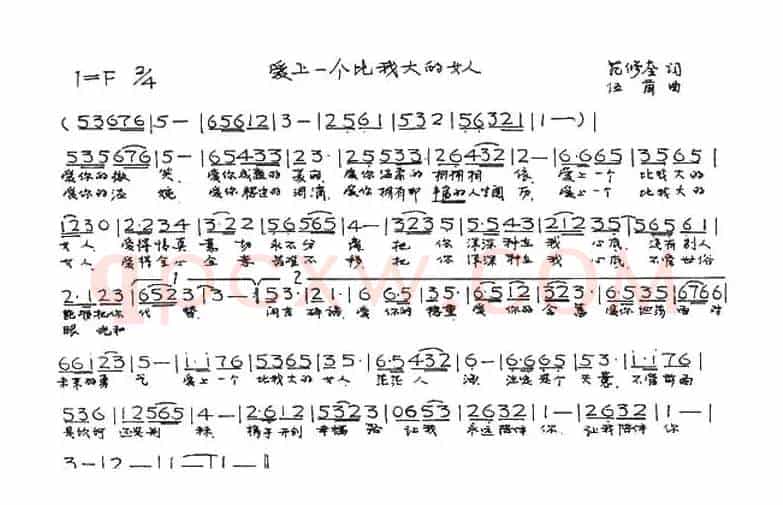 爱上一个比我大的女人
1=F 2/4
范修奎 词
伍 荀 曲
( 5 3 6 7 6 | 5 — | 6 5 6 1 2 | 3 — | 2 5 6 1 | 5 3 2 | 5 6 3 2 1 | 1 — ) |
5 3 5 6 7 6 | 5 — | 6 5 4 3 3 | 2 3 · | 2 5 5 3 3 | 2 6 4 3 2 | 2 — | 6 · 6 6 5 | 3 5 6 5 |
爱你的微 笑 爱你成熟的 美丽 爱你温柔的 拥拥相 依 爱上一个 比我大的
爱你的 爱你 爱你拥有那 丰富的人生 爱上一个 比我大的
1 2 3 0 | 2 · 2 3 4 | 3 · 2 2 | 5 6 5 6 5 | 4 — | 3 2 3 5 | 5 · 5 4 3 | 2 1 2 3 5 | 5 6 5 6 1 |
女人 爱得情真 意 切 永不分 离 把 你 深深种在 我 心底 没有别人
女人 爱得全心 全 意 不 移 把 你 深深种在 我 心底 不管世俗
1 2
2 · 1 2 3 | 6 5 2 3 | 3 — | 5 3 · | 2 1 · | 6 6 5 | 3 5 · | 6 5 1 2 | 3 2 3 | 6 · 5 3 5 | 6 7 6 6 |
能够把你 代 替 闲言 碎语 爱 你的 稳重 爱 你的 含蓄 爱你 面对
眼 光和
6 6 1 2 3 | 5 — | 1 · 1 7 6 | 5 3 6 5 | 3 5 · | 6 · 5 4 3 2 | 6 — | 6 · 6 6 5 | 5 3 · | 1 · 1 7 6 |
未来的勇 气 爱上一个 比我大的 女人 茫茫人 海 注定是个 天意 不管前面
5 3 6 | 1 2 5 6 5 | 4 — | 2 · 6 1 2 | 5 3 2 3 | 0 6 5 3 | 2 6 3 2 | 1 — | 2 6 3 2 | 1 — |
是坎坷 还是荆 棘 携手开创 幸福 路 让我 永远陪伴 你 让我陪伴 你
3 — | 2 — | 1 — | 1 — ‖